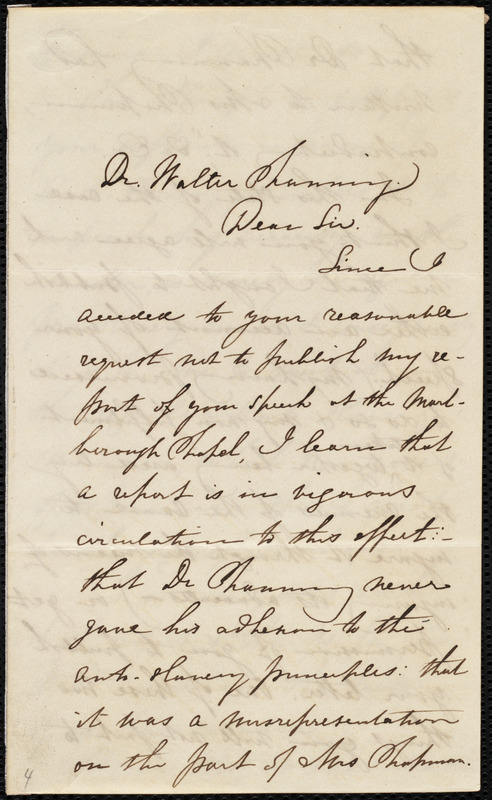 Dr. Walter Channing.
Dear Sir.
Since I
acceded to your reasonable
request not to publish my re-
port of your speech at the Marl-
borough Chapel, I learn that
a report is in vigorous
circulation to this effect:-
that Dr Channing never
gave his adhesion to the
anti-slavery principles: that
it was a misrepresentation
on the part of Mrs Chapman.
4